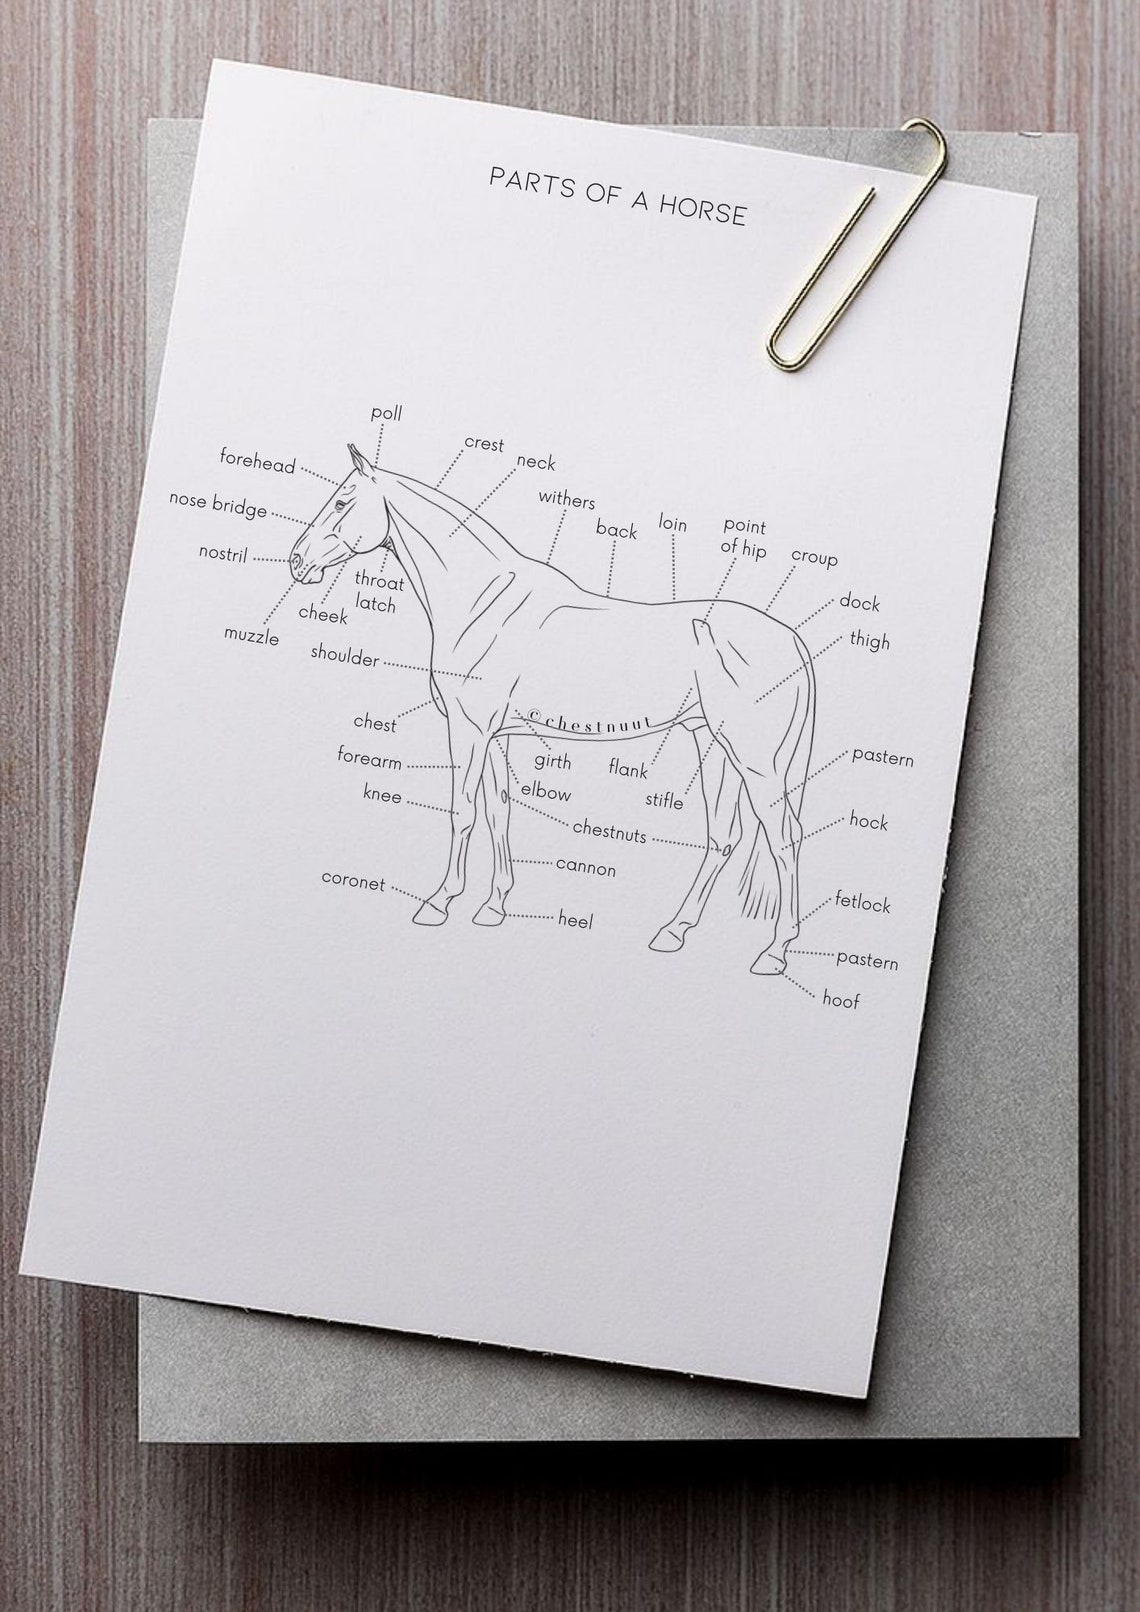 PARTS OF A HORSE
poll
crest
neck
forehead
withers
nose bridge
back
loin
point
of hip
croup
nostril
throat
latch
cheek
muzzle
dock
thigh
shoulder
chest
© chestnuut
forearm
girth
flank
pastern
knee
elbow
stifle
chestnuts
hock
cannon
coronet
heel
fetlock
pastern
hoof